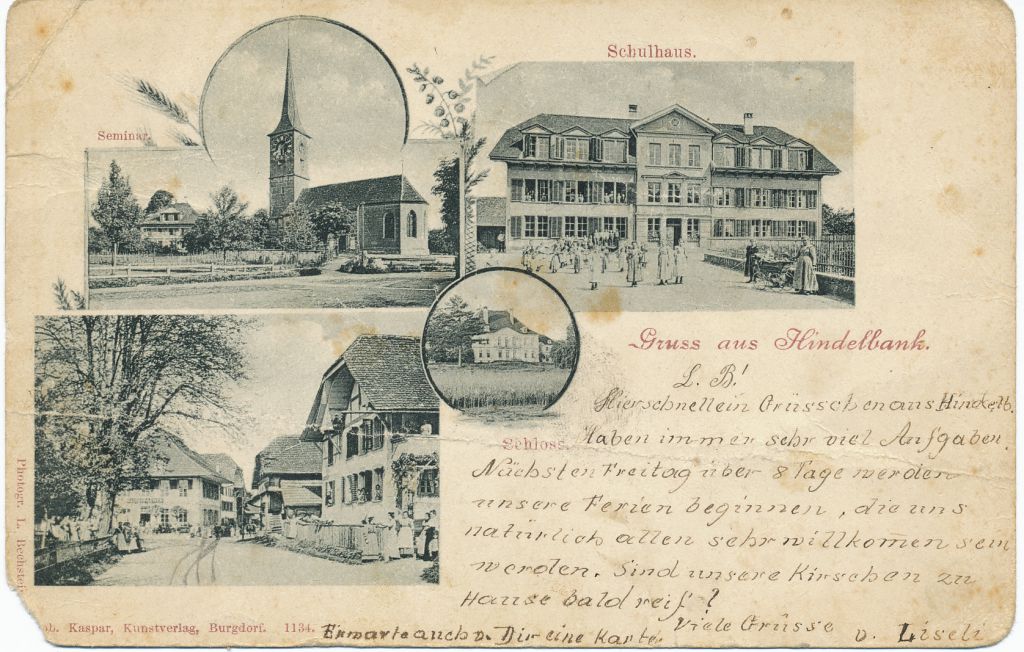 Schulhaus.
Seminar.
Gruss aus Hindelbank.
L. B!
Hier schnell ein Grüsschen aus Hindelb.
Schloss.
Haben immer sehr viel Aufgaben.
Nächsten Freitag über 8 Tage werden
unsere Ferien beginnen, die uns
natürlich allen sehr willkommen sein
werden. Sind unsere Kirschen zu
Hause bald reif?
Viele Grüsse
v. Liseli
Erwarte auch v. Dir eine Karte.
Photogr. L. Bechstein
ob. Kaspar, Kunstverlag, Burgdorf. 1134.